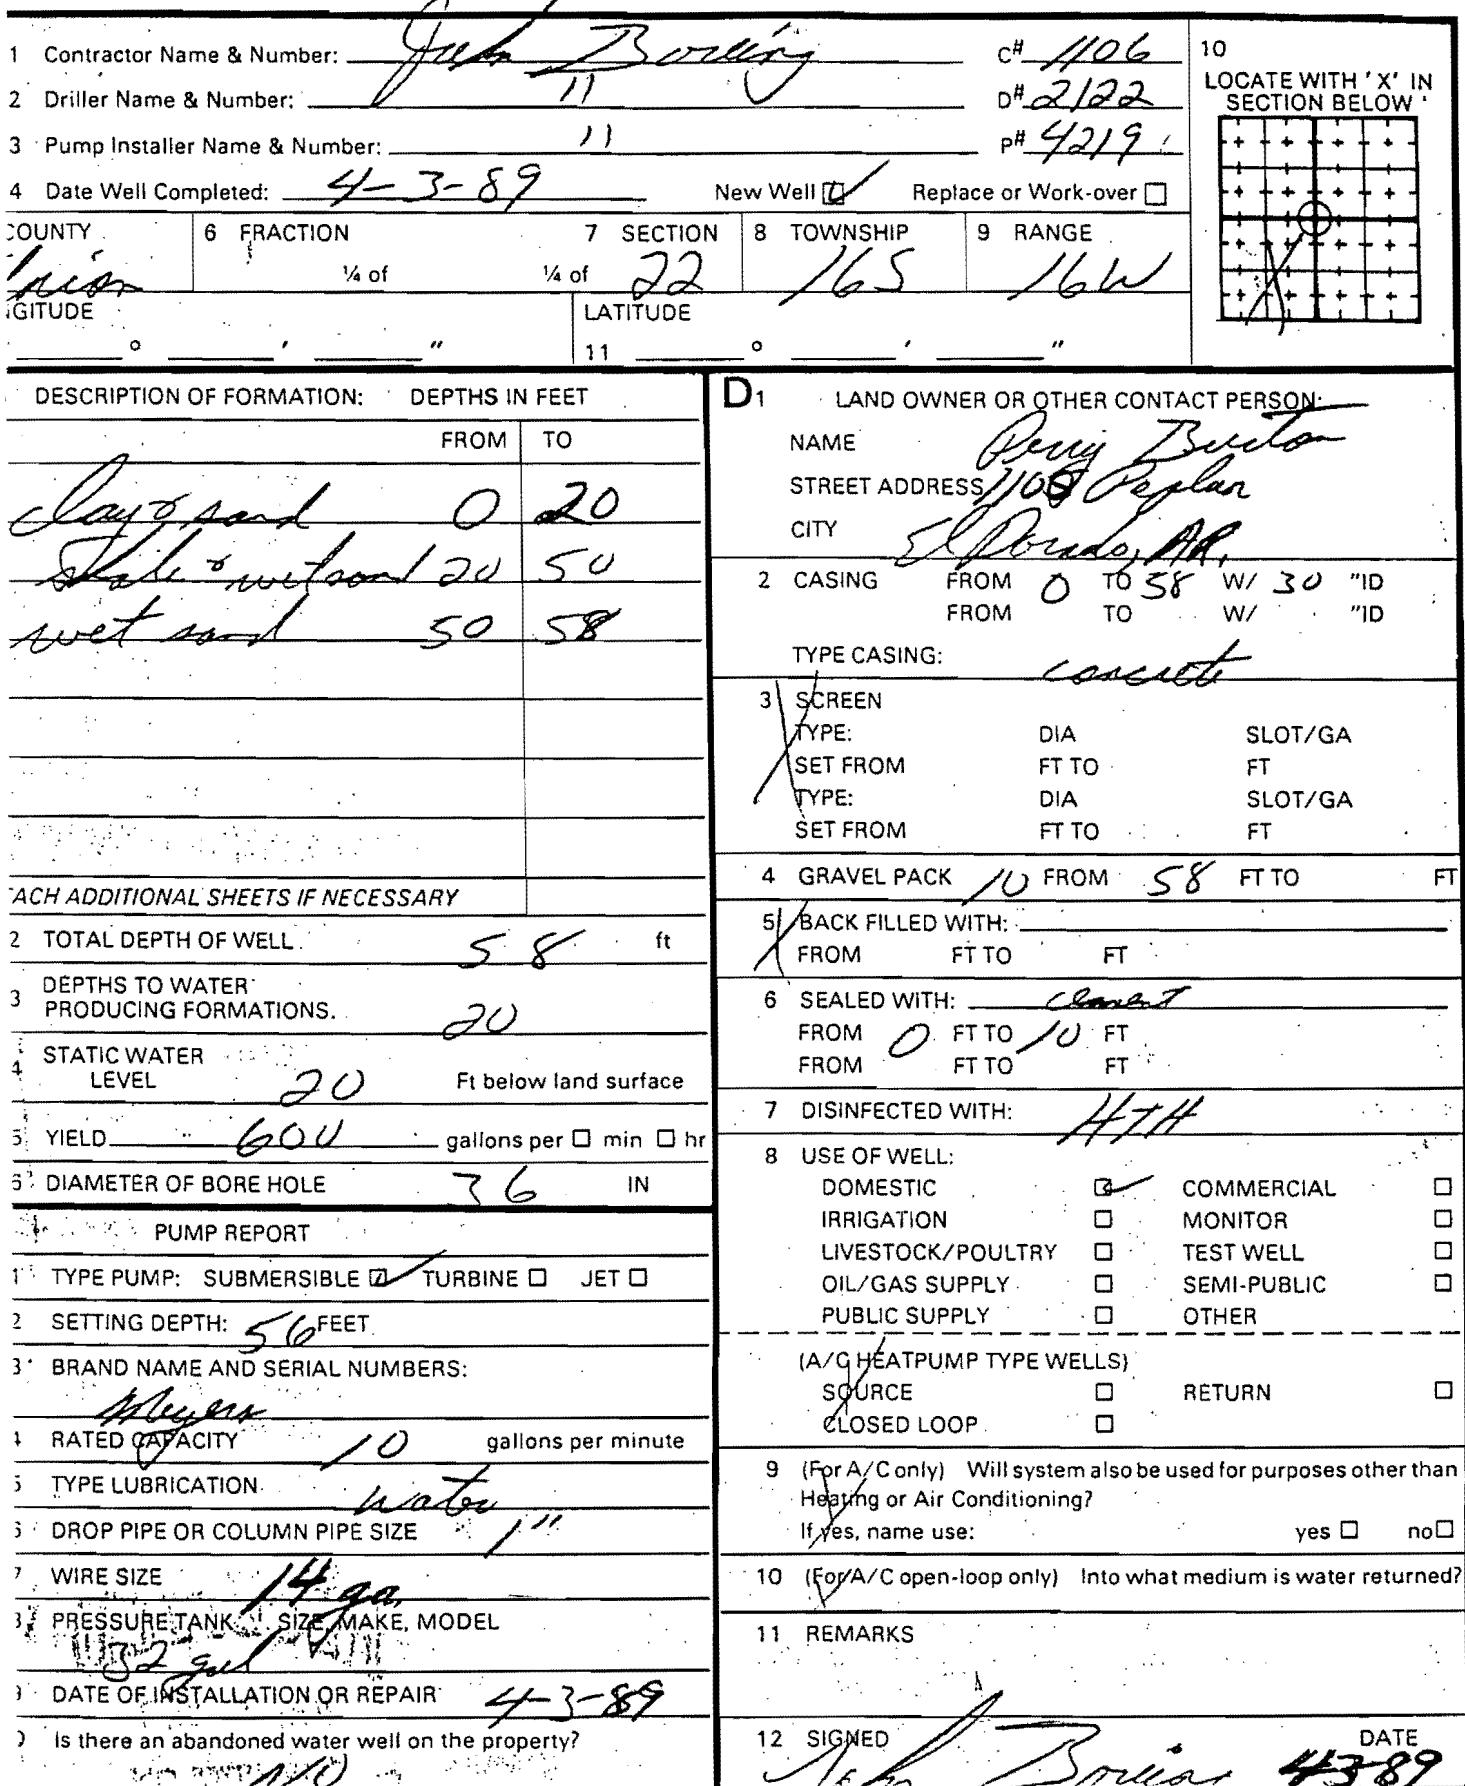 1 Contractor Name & Number: John Boving C# 1106
2 Driller Name & Number: 11 D# 2122
3 Pump Installer Name & Number: 11 P# 4219
4 Date Well Completed: 4-3-89 New Well Replace or Work-over
10
LOCATE WITH 'X' IN
SECTION BELOW
COUNTY 6 FRACTION 7 SECTION 8 TOWNSHIP 9 RANGE
¼ of ¼ of 22 16S 16W
GITUDE LATITUDE
° ' " 11 ° ' "
DESCRIPTION OF FORMATION: DEPTHS IN FEET
FROM TO
clay & sand 0 20
Shale & wet sand 20 50
wet sand 50 58
ACH ADDITIONAL SHEETS IF NECESSARY
2 TOTAL DEPTH OF WELL 58 ft
3 DEPTHS TO WATER
PRODUCING FORMATIONS. 20
4 STATIC WATER
LEVEL 20 Ft below land surface
5 YIELD 600 gallons per min hr
6 DIAMETER OF BORE HOLE 36 IN
PUMP REPORT
1 TYPE PUMP: SUBMERSIBLE TURBINE JET
2 SETTING DEPTH: 56 FEET
3 BRAND NAME AND SERIAL NUMBERS:
Meyers
4 RATED CAPACITY 10 gallons per minute
5 TYPE LUBRICATION water
6 DROP PIPE OR COLUMN PIPE SIZE 1"
7 WIRE SIZE 14 ga.
PRESSURE TANK SIZE, MAKE, MODEL
32 gal
9 DATE OF INSTALLATION OR REPAIR 4-3-89
Is there an abandoned water well on the property?
NO
D1 LAND OWNER OR OTHER CONTACT PERSON:
NAME Perry Burton
STREET ADDRESS Peplar
CITY El Dorado, AR.
2 CASING FROM 0 TO 58 W/ 30 "ID
FROM TO W/ "ID
TYPE CASING: concrete
3 SCREEN
TYPE: DIA SLOT/GA
SET FROM FT TO FT
TYPE: DIA SLOT/GA
SET FROM FT TO FT
4 GRAVEL PACK 10 FROM 58 FT TO FT
5 BACK FILLED WITH:
FROM FT TO FT
6 SEALED WITH: cement
FROM 0 FT TO 10 FT
FROM FT TO FT
7 DISINFECTED WITH: HTH
8 USE OF WELL:
DOMESTIC COMMERCIAL
IRRIGATION MONITOR
LIVESTOCK/POULTRY TEST WELL
OIL/GAS SUPPLY SEMI-PUBLIC
PUBLIC SUPPLY OTHER
(A/C HEATPUMP TYPE WELLS)
SOURCE RETURN
CLOSED LOOP
9 (For A/C only) Will system also be used for purposes other than
Heating or Air Conditioning?
If yes, name use: yes no
10 (For A/C open-loop only) Into what medium is water returned?
11 REMARKS
12 SIGNED DATE
John 4-3-89